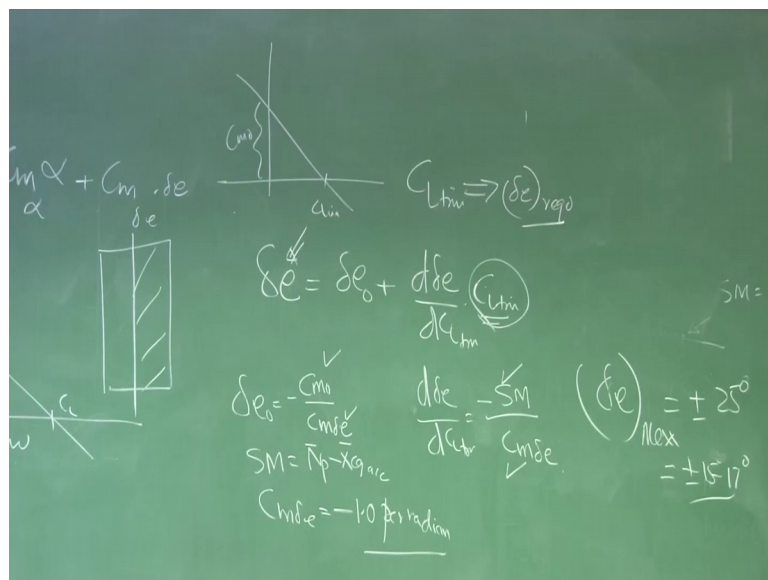 Cm₀
αtrim
mα α + Cm δe · δe
C_Ltrim ⇒ (δe)reqd
δe = δe₀ + dδe/dC_Ltrim · C_Ltrim
SM =
δe₀ = -Cm₀/Cmδe
dδe/dC_Ltrim = -SM/Cmδe
(δe)Max = ± 25°
= ±15-17°
C_L
SM = N̄p - X̄cg
Cmδe = -1.0 per radian